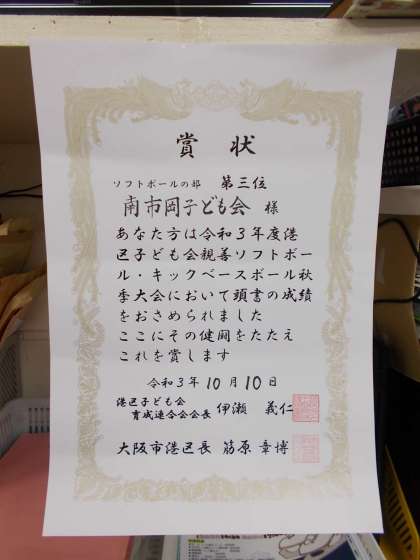 賞状
ソフトボールの部 第三位
南市岡子ども会 様
あなた方は令和3年度港
区子ども会親善ソフトボー
ル・キックベースボール秋
季大会において頭書の成績
をおさめられました
ここにその健闘をたたえ
これを賞します
令和3年10月10日
港区子ども会
育成連合会会長 伊瀬 義仁
大阪市港区長 筋原 章博